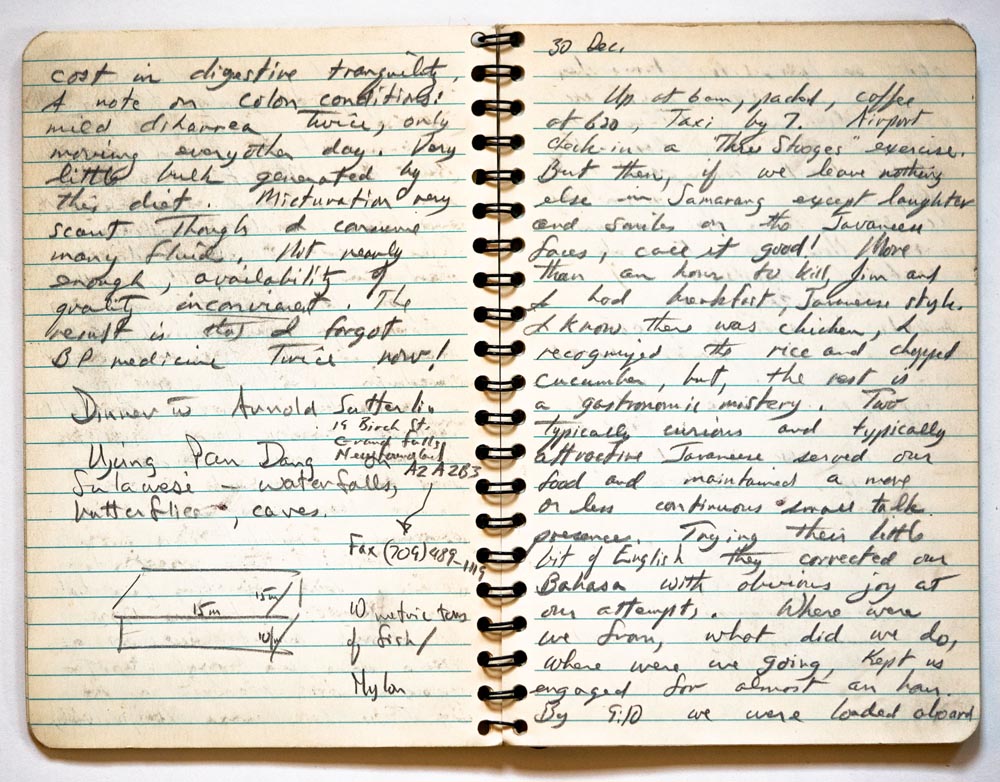 cost in digestive tranquility.
A note on colon conditions:
mild dihārrea twice, only
moving everyother day. Very
little bulk generated by
this diet. Micturation very
scant though I consume
many fluid. Not nearly
enough, availability of
quality inconvienent. The
result is that I forgot
BP medicine twice now!
Dinner w Arnold Sutterlin
19 Birch St.
Grand Falls,
Newfoundland
A2A 2B3
Ujung Pan Dang
Sulawesi – waterfalls,
butterflies, caves.
Fax (709) 489-1119
15m
15m
10m
10 metric tons
of fish/
Nylon
30 Dec.
Up at 6am, packed, coffee
at 630, Taxi by 7. Airport
check-in a "Three Stooges" exercise.
But then, if we leave nothing
else in Samarang except laughter
and smiles on the Javaneese
faces, call it good! More
than an hour to kill, Jim and
I had breakfast, Javaneese style.
I know there was chicken, I
recognized the rice and chopped
cucumber, but, the rest is
a gastronomic mistery. Two
typically curious and typically
attractive Javaneese served our
food and maintained a more
or less continuous small talk
presences. Trying their little
bit of English they corrected our
Bahasa with obvious joy at
our attempts. Where were
we from, what did we do,
where were we going, kept us
engaged for almost an hour.
By 9:10 we were loaded aboard